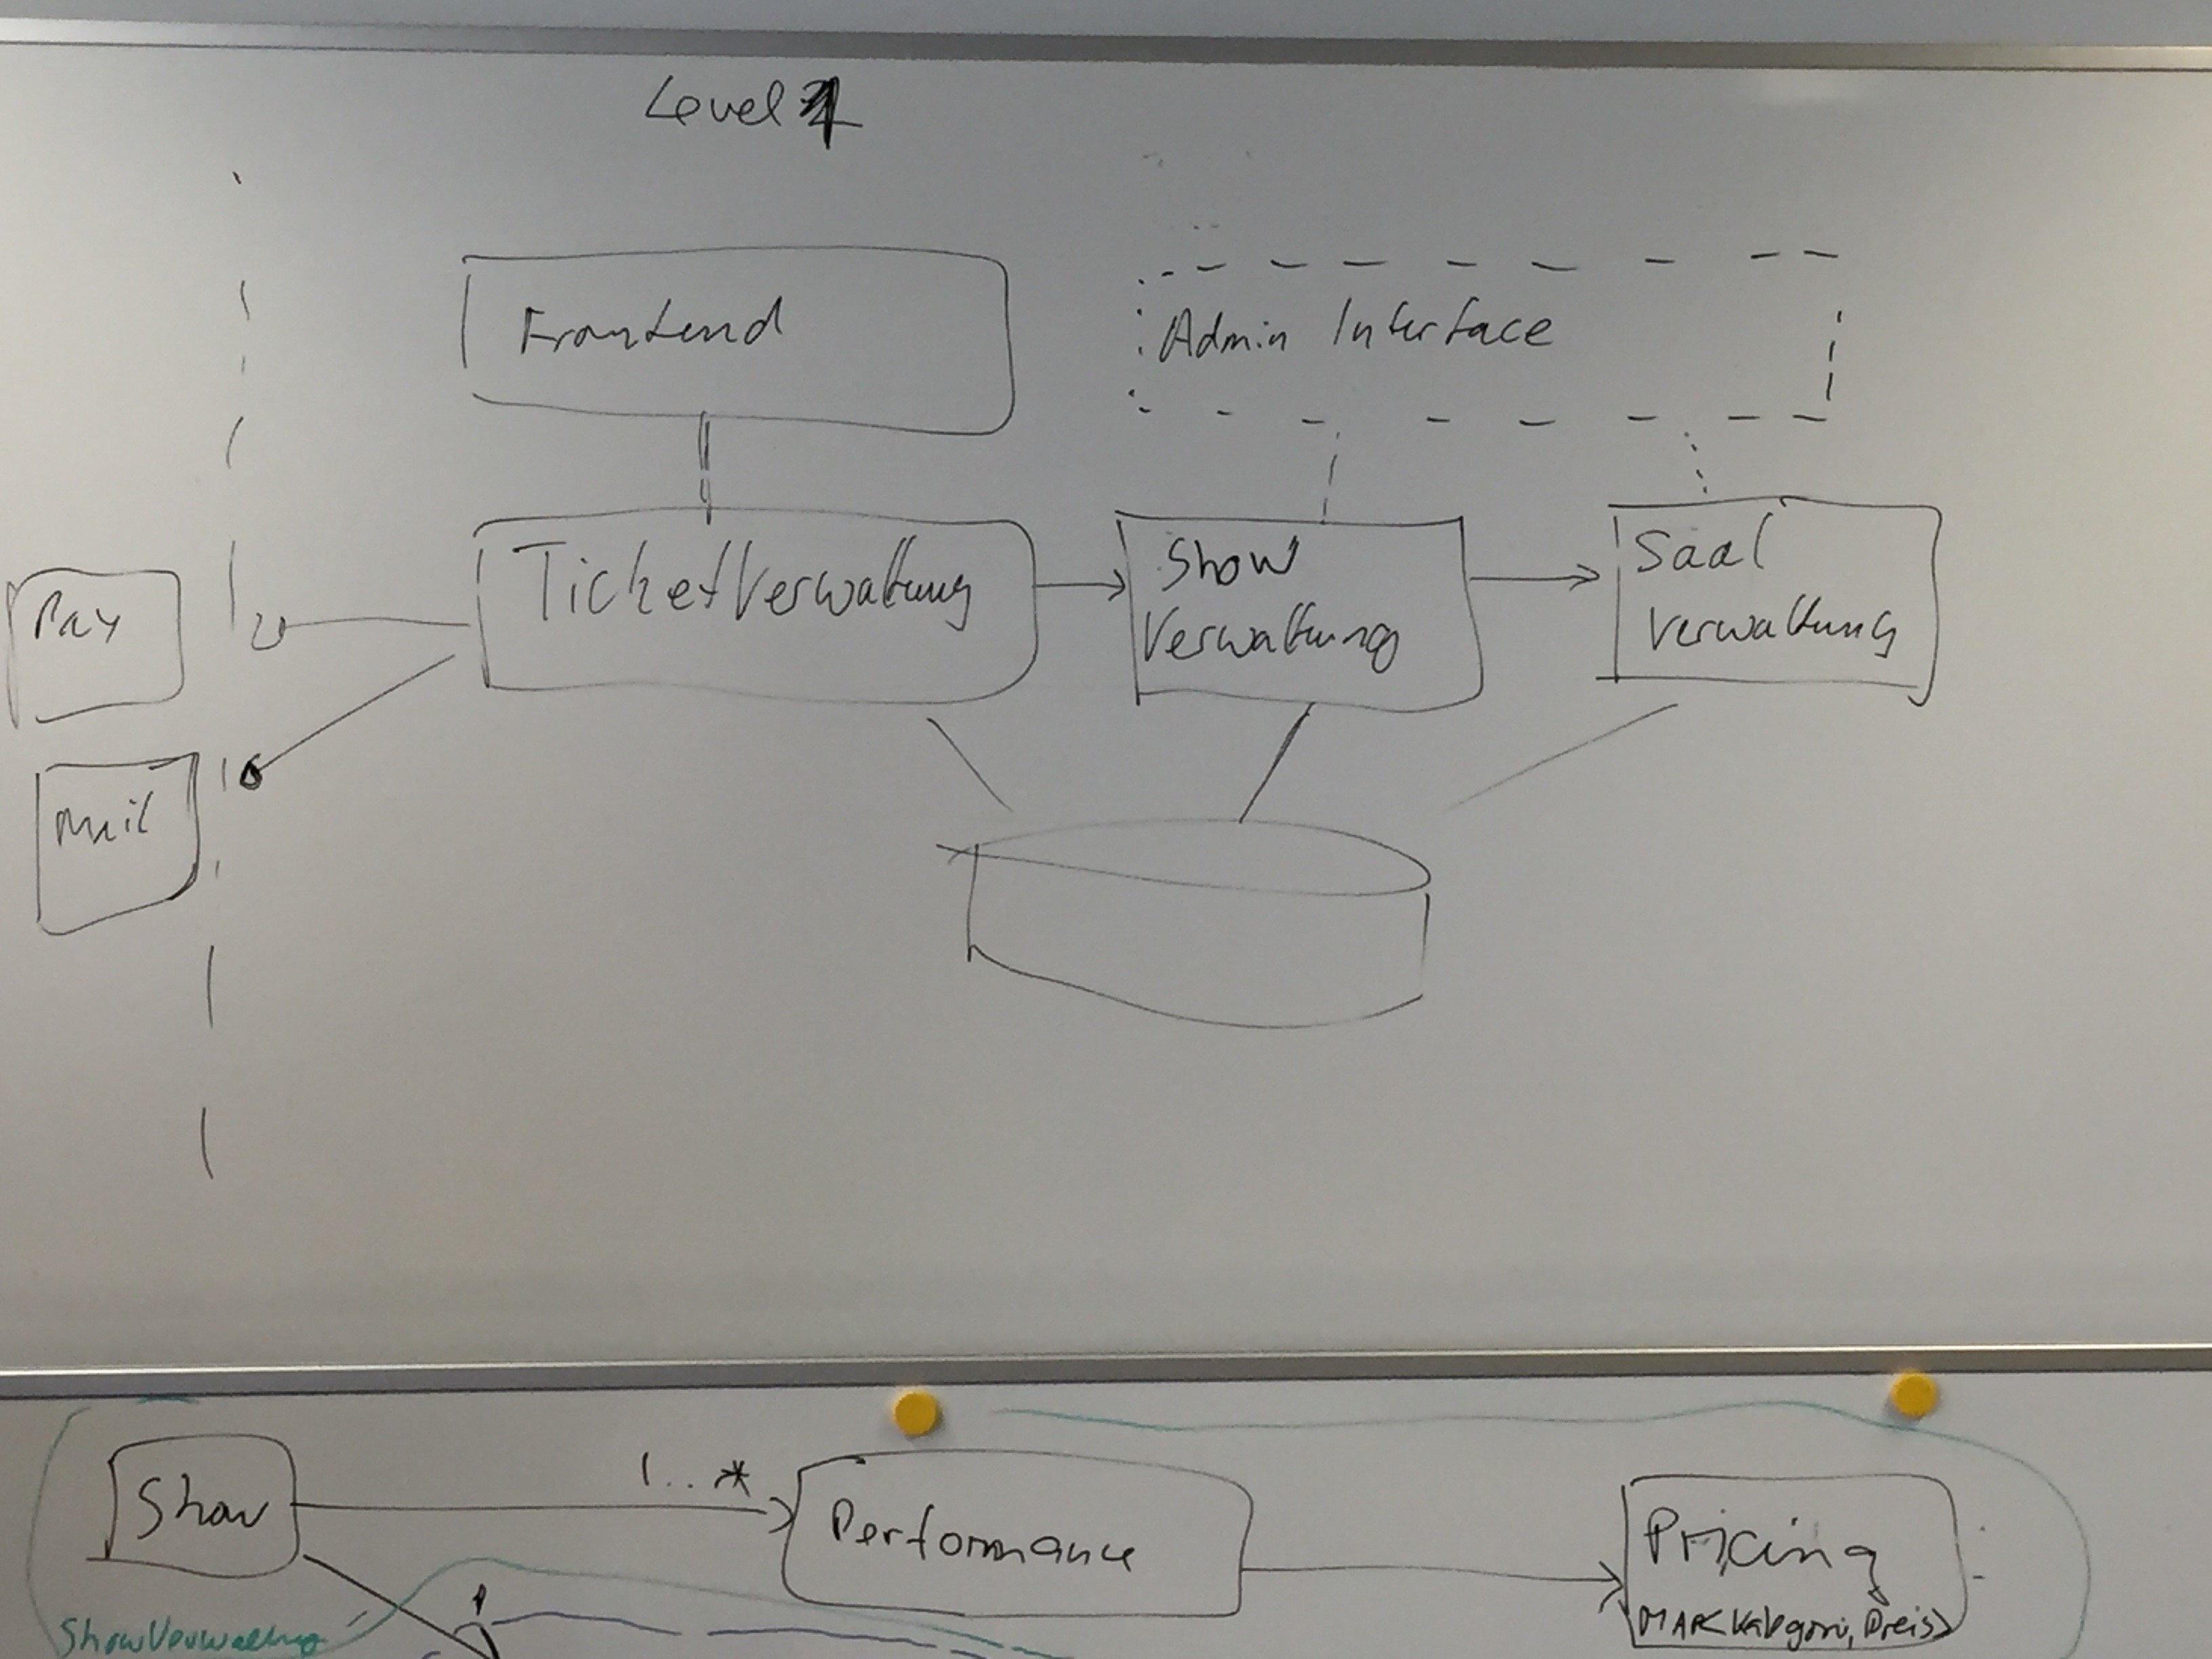 Level 1
Frontend
Admin Interface
TicketVerwaltung
Show
Verwaltung
Saal
Verwaltung
Pay
Mail
1..*
Show
Performance
Pricing
MAP<Kategori, Preis>
ShowVerwaltung
1